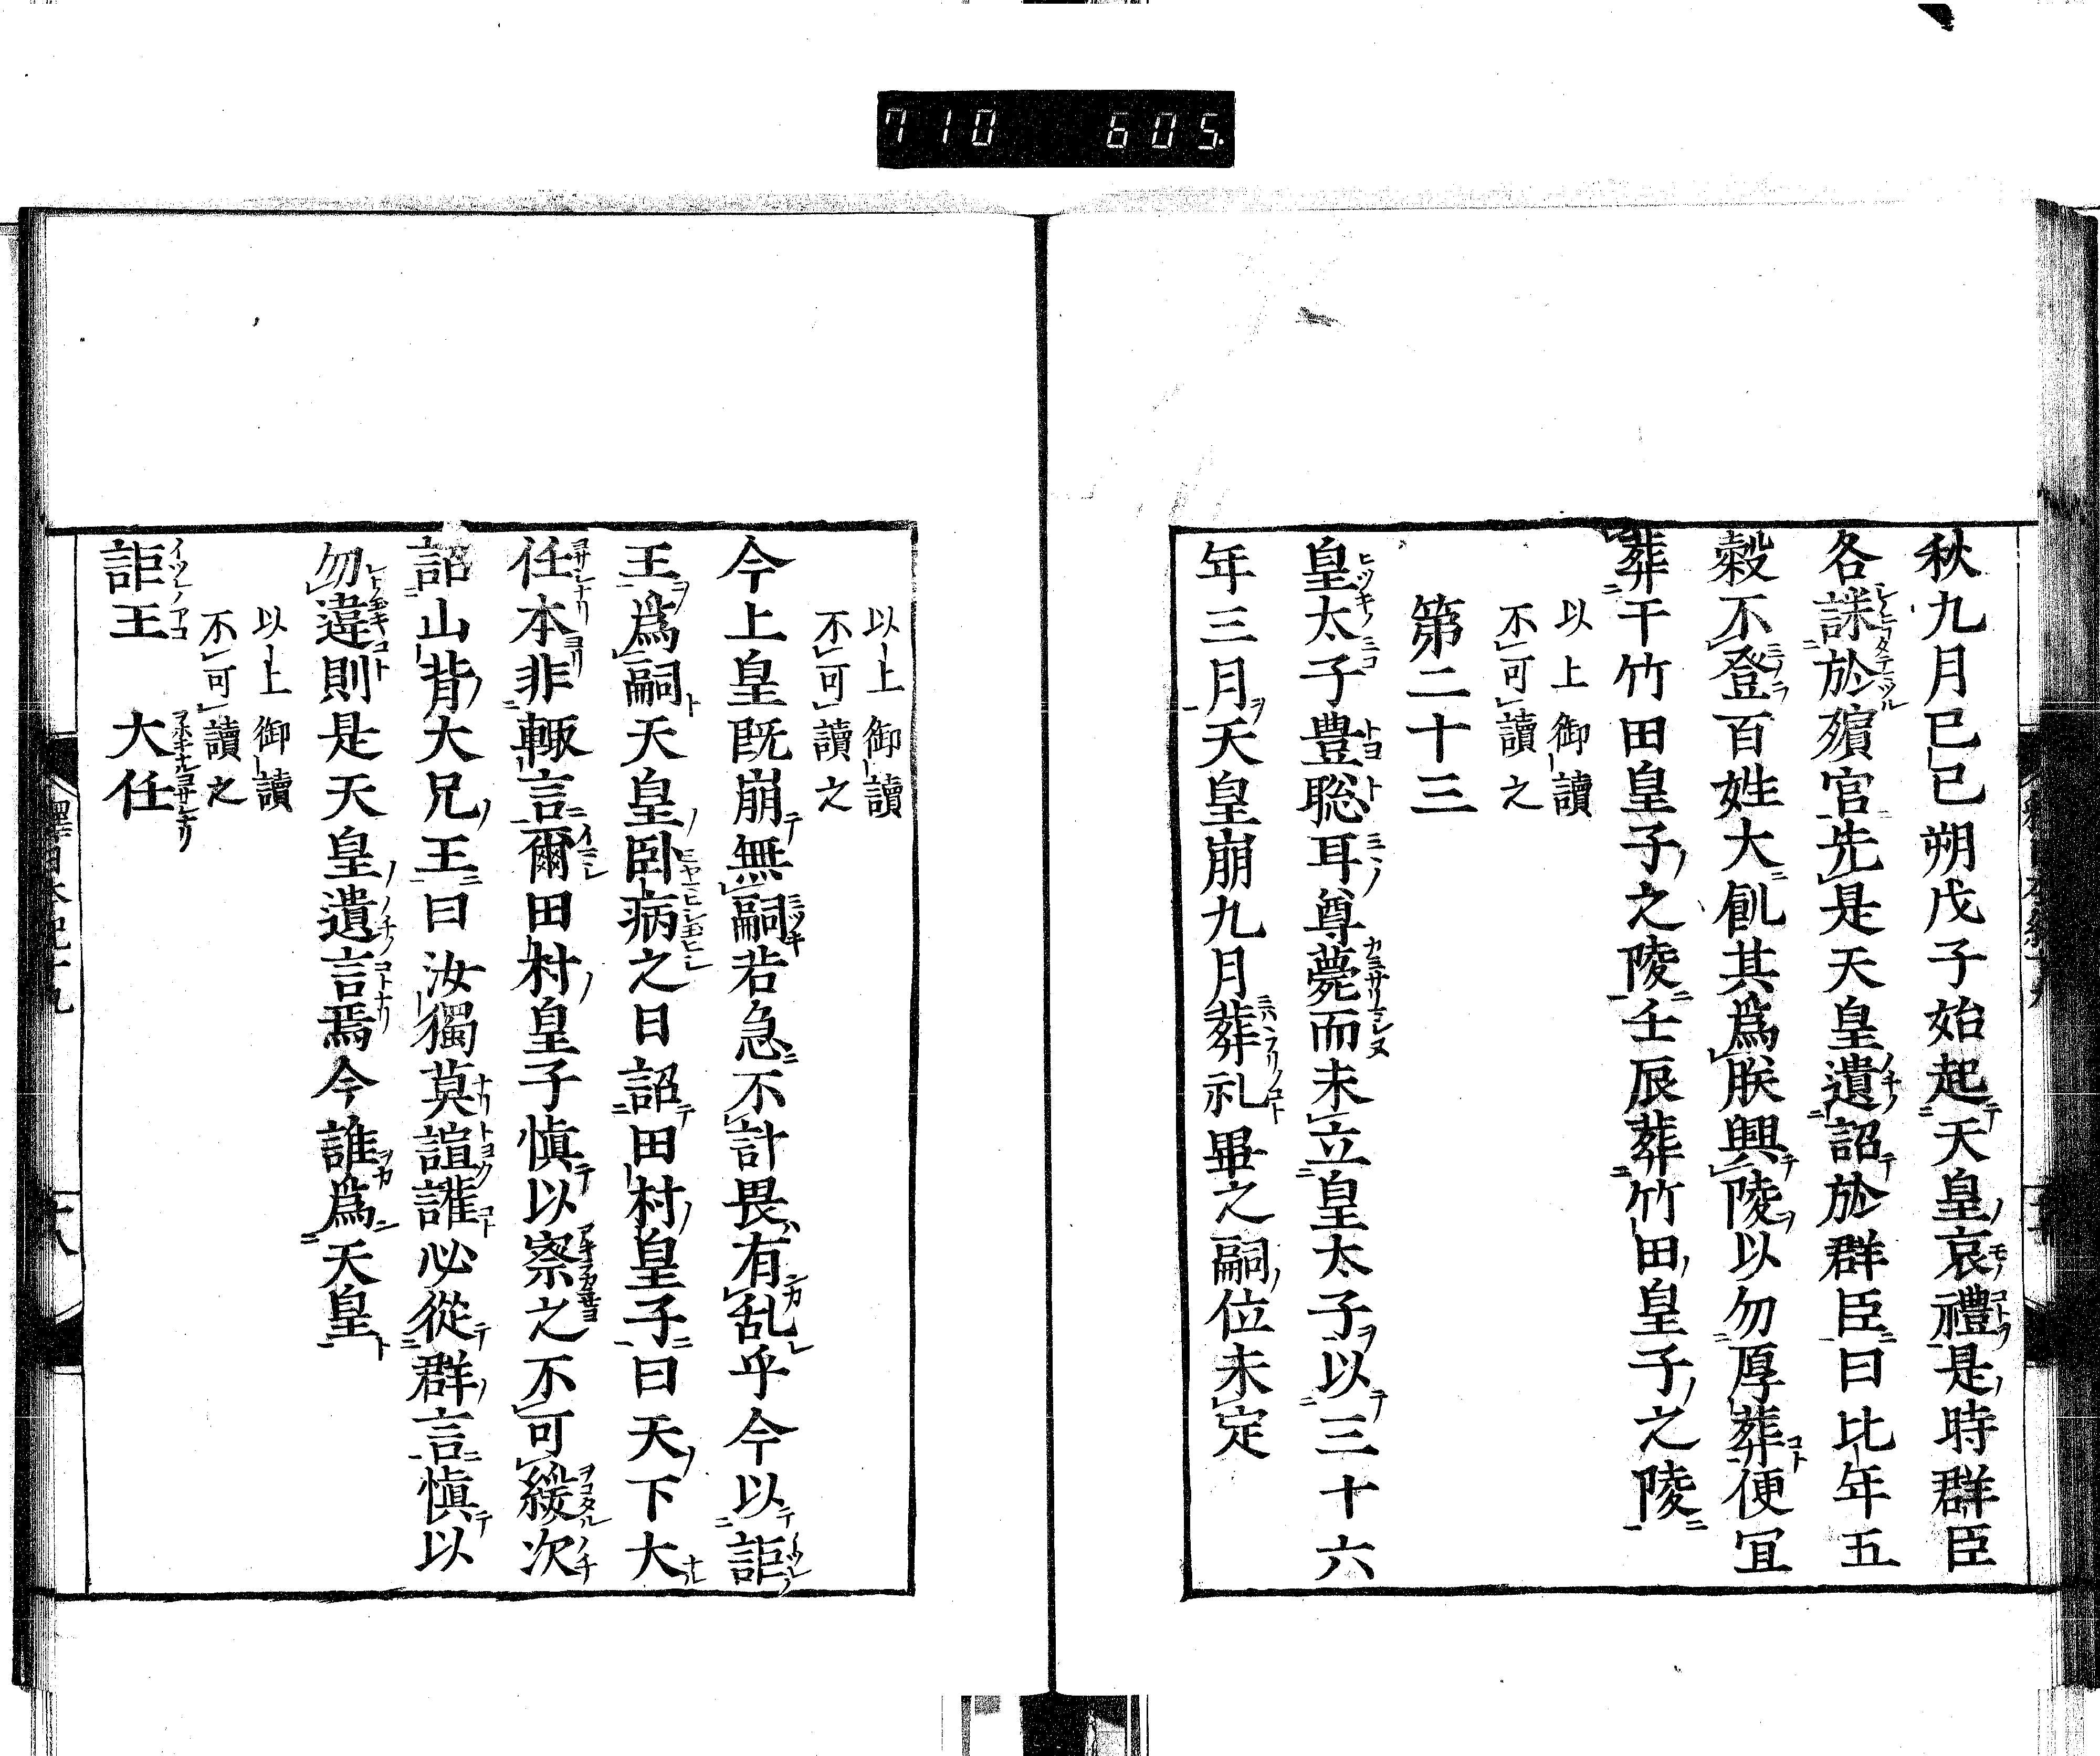 710 605.
秋九月己巳朔戊子始起天皇哀禮是時群臣
各誄於殯宮先是天皇遺詔於群臣曰比年五
穀不登百姓大飢其爲朕興陵以勿厚葬便宜
葬于竹田皇子之陵壬辰葬竹田皇子之陵
以上御讀
不可讀之
第二十三
皇太子豊聡耳尊薨而未立皇太子以三十六
年三月天皇崩九月葬礼畢之嗣位未定
以上御讀
不可讀之
今上皇既崩無嗣若急不計畏有乱乎今以詎
王爲嗣天皇臥病之日詔田村皇子曰天下大
任本非輙言爾田村皇子愼以察之不可緩次
詔山背大兄王曰汝獨莫諠讙必從群言愼以
勿違則是天皇遺言焉今誰爲天皇
以上御讀
不可讀之
詎王　大任